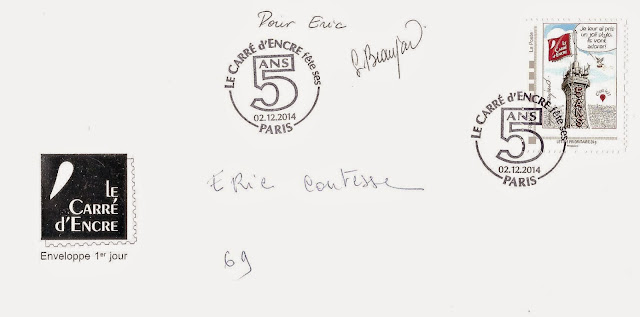 Pour Eric
LE CARRÉ d'ENCRE fête ses
5 ANS
02.12.2014
PARIS
Je leur ai pris
un joli stylo,
ils vont
adorer!
LE CARRÉ d'ENCRE fête ses
5 ANS
02.12.2014
PARIS
LE
CARRÉ
d'ENCRE
Enveloppe 1er jour
Eric Coutesse
69